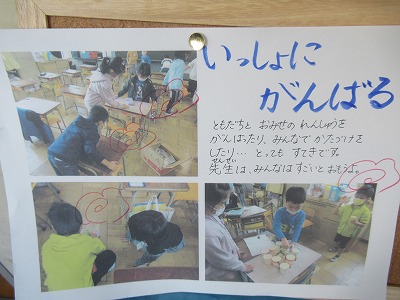 いっしょに
がんばる
ともだちと おみせの れんしゅうを
がんばったり、みんなで かたづけを
したり… とっても すてきです。
せんせい
先生は、みんなはすごいとおもうよ。